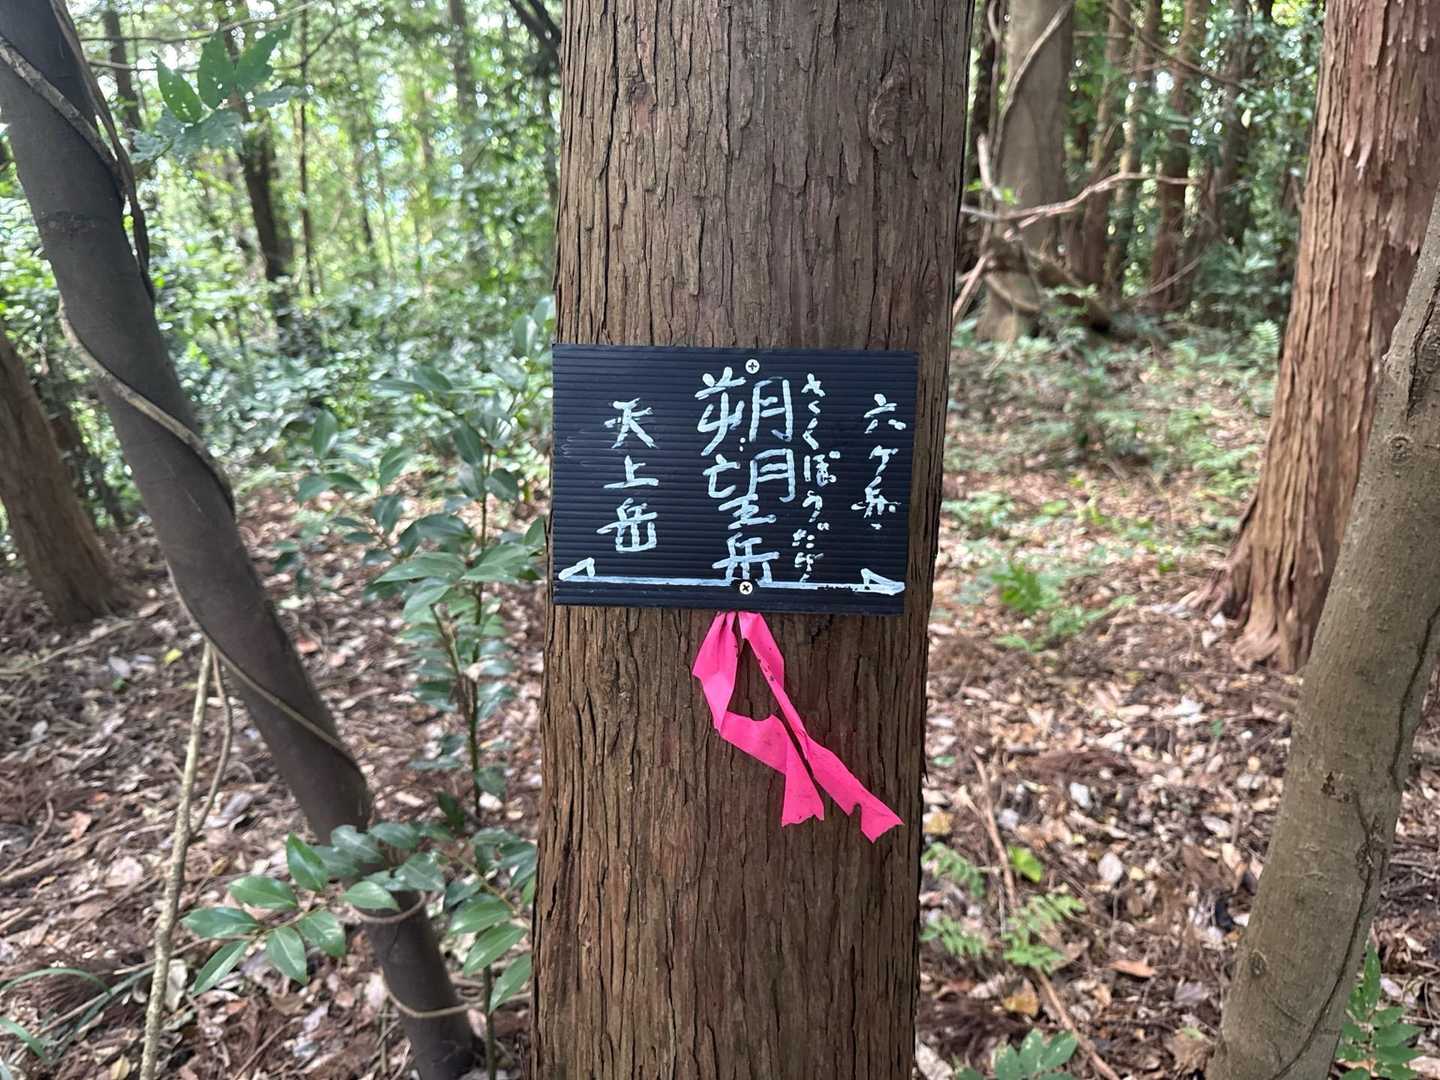 六ヶ岳
さくぼうだけ
朔望岳
天上岳